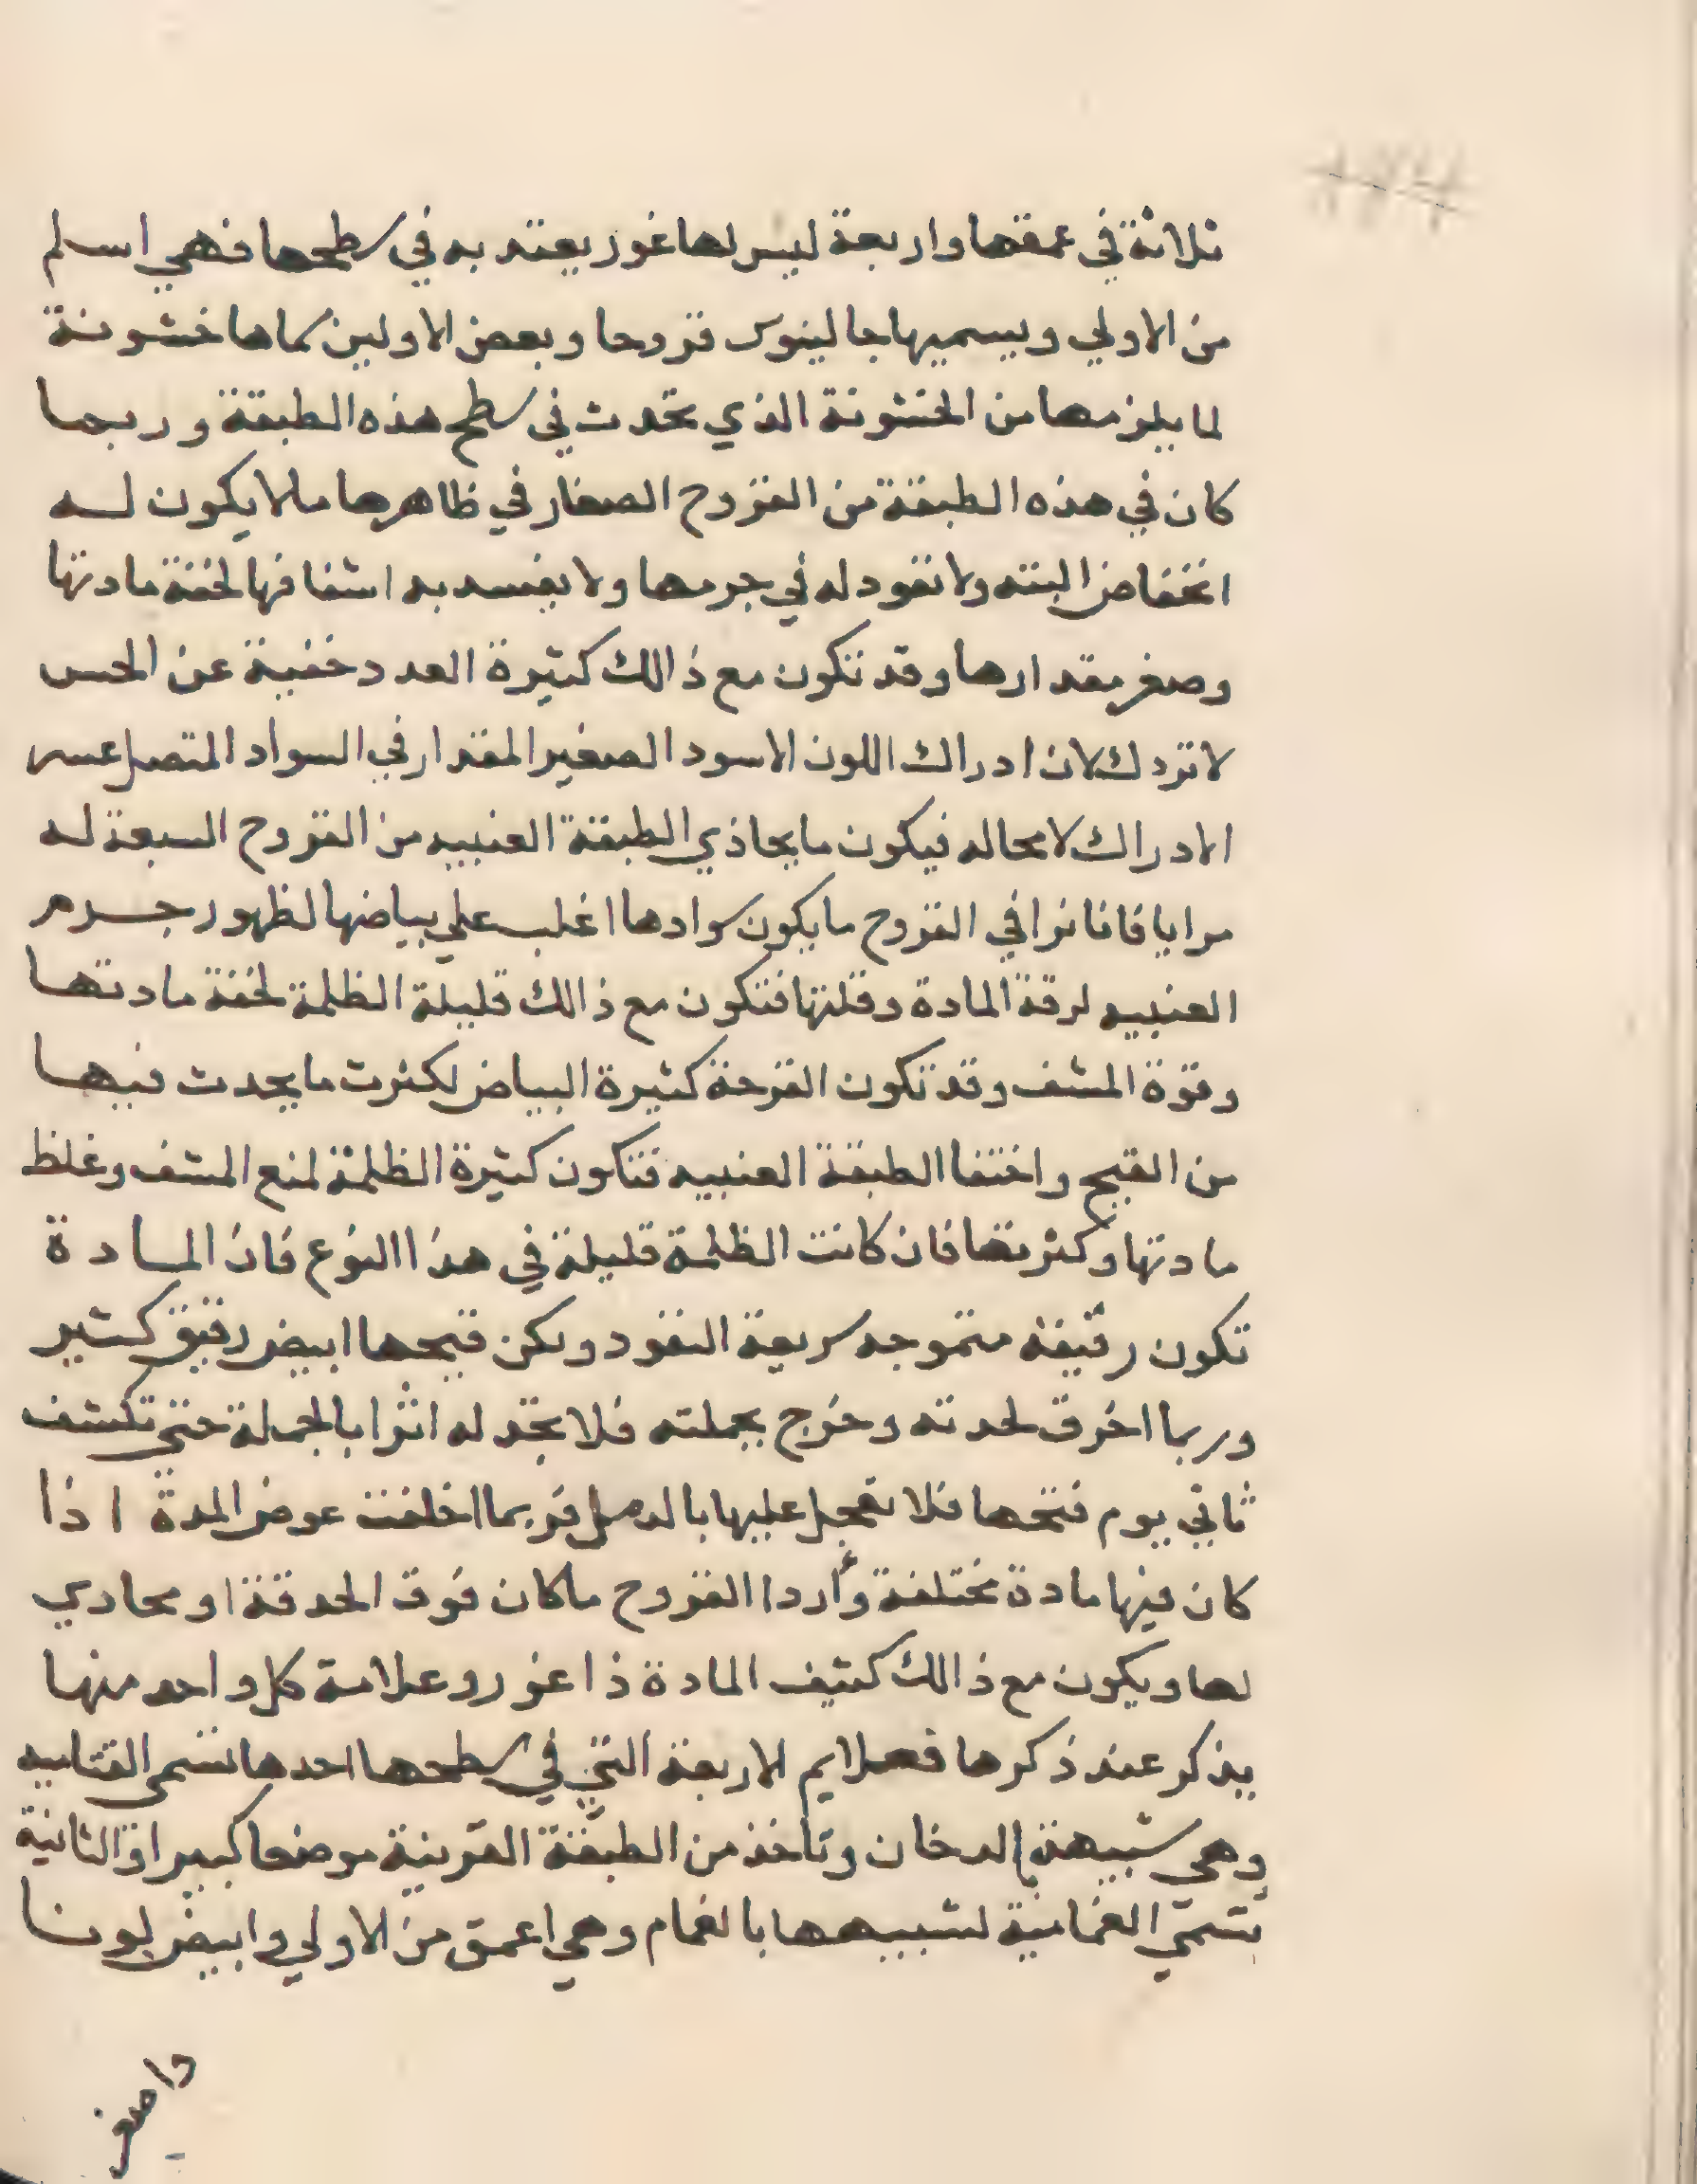 ثلاثة في عمقها واربعة ليس لها غور يعتد به في سطحها فهي اسلم
من الاولي ويسميها جالينوس قروحا وبعض الاولين سماها خشونة
لما يلزمها من الخشونة الذي تحدث في سطح هذه الطبقة وربما
كان في هذه الطبقة من القروح الصغار في ظاهرها ما لا يكون له
انخفاض البته ولا نفود له في جرمها ولا يفسد به اشفافها لخفة مادتها
وصغر مقدارها وقد تكون مع ذالك كثيرة العدد خفية عن الحس
لا تردك لان ادراك اللون الاسود الصغير المقدار في السواد المتصل عسر
الادراك لا محاله فيكون ما يحاذي الطبقة العنبيه من القروح السبعة له
مرايا فافانوا في القروح ما يكون سوادها اغلب علي بياضها لظهور جرم
العنبيه لرقة المادة وقلتها فتكون مع ذالك قليلة الظلمة لخفة مادتها
وقوة المشف وقد تكون القرحة كثيرة البياض لكثرت ما يحدث فيها
من القيح واختفا الطبقة العنبيه فتكون كثيرة الظلمة لمنع المشف وغلظ
مادتها وكثرتها فان كانت الظلمة قليلة في هذا النوع فان المادة
تكون رقيقة متموجه سريعة النفود ويكن قيحها ابيض رقيق كثير
وربما اخرق لحدته وخرج بجملته فلا تجد له اثرا بالجملة حتي تكشف
ثاني يوم فتحها فلا تعجل عليها بالدمل فربما اخلفت عوض المدة اذا
كان فيها مادة مختلفة وأردا القروح ما كان فوق الحدقة او محادي
لها ويكون مع ذالك كثيف المادة ذا غور وعلامة كل واحد منها
يذكر عند ذكرها فعلايم الاربعة التي في سطحها احدها تسمي القتاميه
وهي شبيهة بالدخان وتاخذ من الطبقة القرنية موضعا كبيرا والثانية
تسمي الغمامية لشبيهها بالغمام وهي اعمق من الاولي وابيض لونا
واصغر